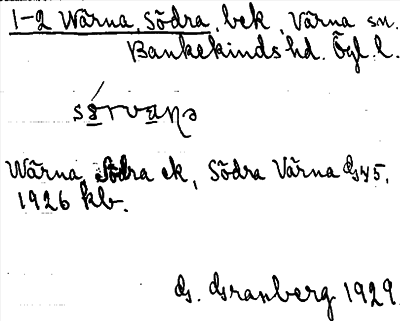 1-2 Wärna, Södra, bek, Värna sn.
Bankekinds hd. Ögl. l.
Wärna, Södra ek, Södra Värna
1926 kb.
G. Granberg 1929.